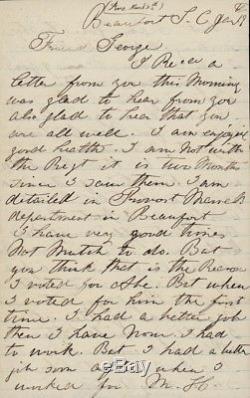 Beaufort S. C Jan
Friend George
I Rec a
letter from you this Morning
was glad to hear from you
also glad to hear that you
are all well. I am enjoying
good health. I am Not with
the Regt it is two Months
since I saw them. I am
detailed in Provost
department in Beaufort
I have very good times
Not Much to do. But
you think that is the Reason
I voted for Abe. But when
I voted for him the first
time. I had a better job
then I have Now. I had
to work. But I had a better
job soon after when I
worked for M.